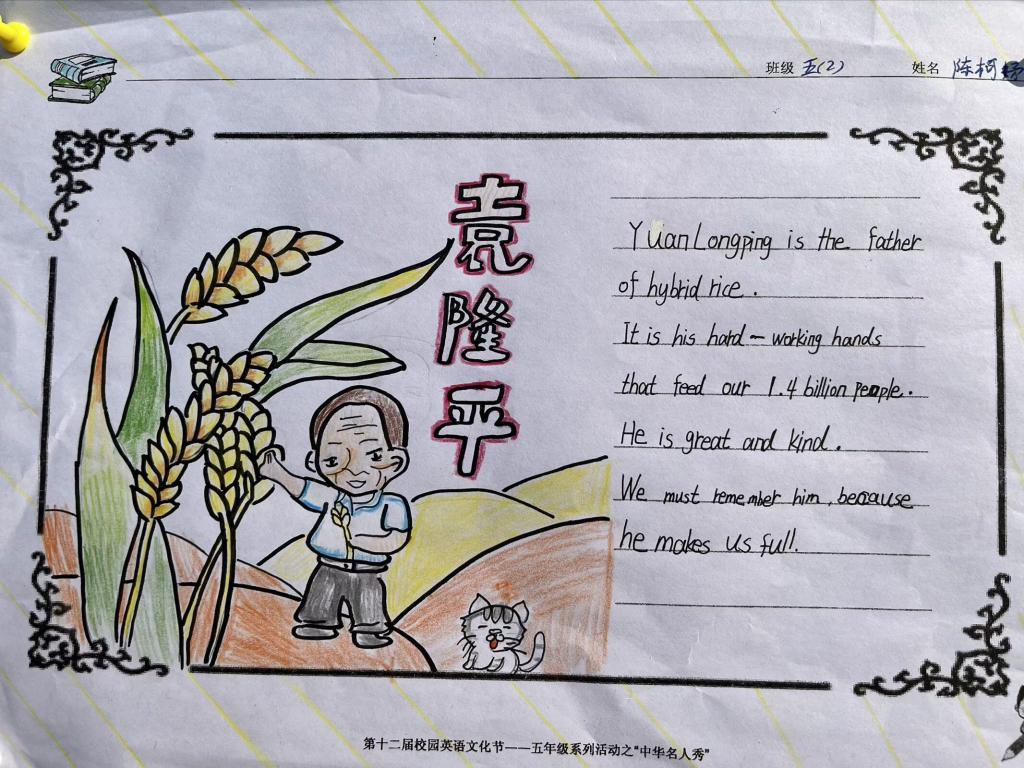 班级 五(2) 姓名 陈柯
袁隆平
Yuan Longping is the father
of hybrid rice.
It is his hard-working hands
that feed our 1.4 billion people.
He is great and kind.
We must remember him, because
he makes us full.
第十二届校园英语文化节——五年级系列活动之"中华名人秀"